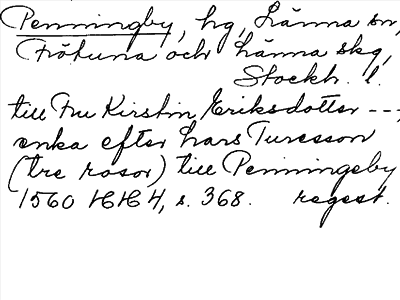 Penningby, hg, Länna sn,
Frötuna och Länna skg,
Stockh. l.
till Fru Kirstin Eriksdotter ---,
enka efter Lars Turesson
(tre rosor) till Penningeby
1560 HH 4, s. 368. regest.